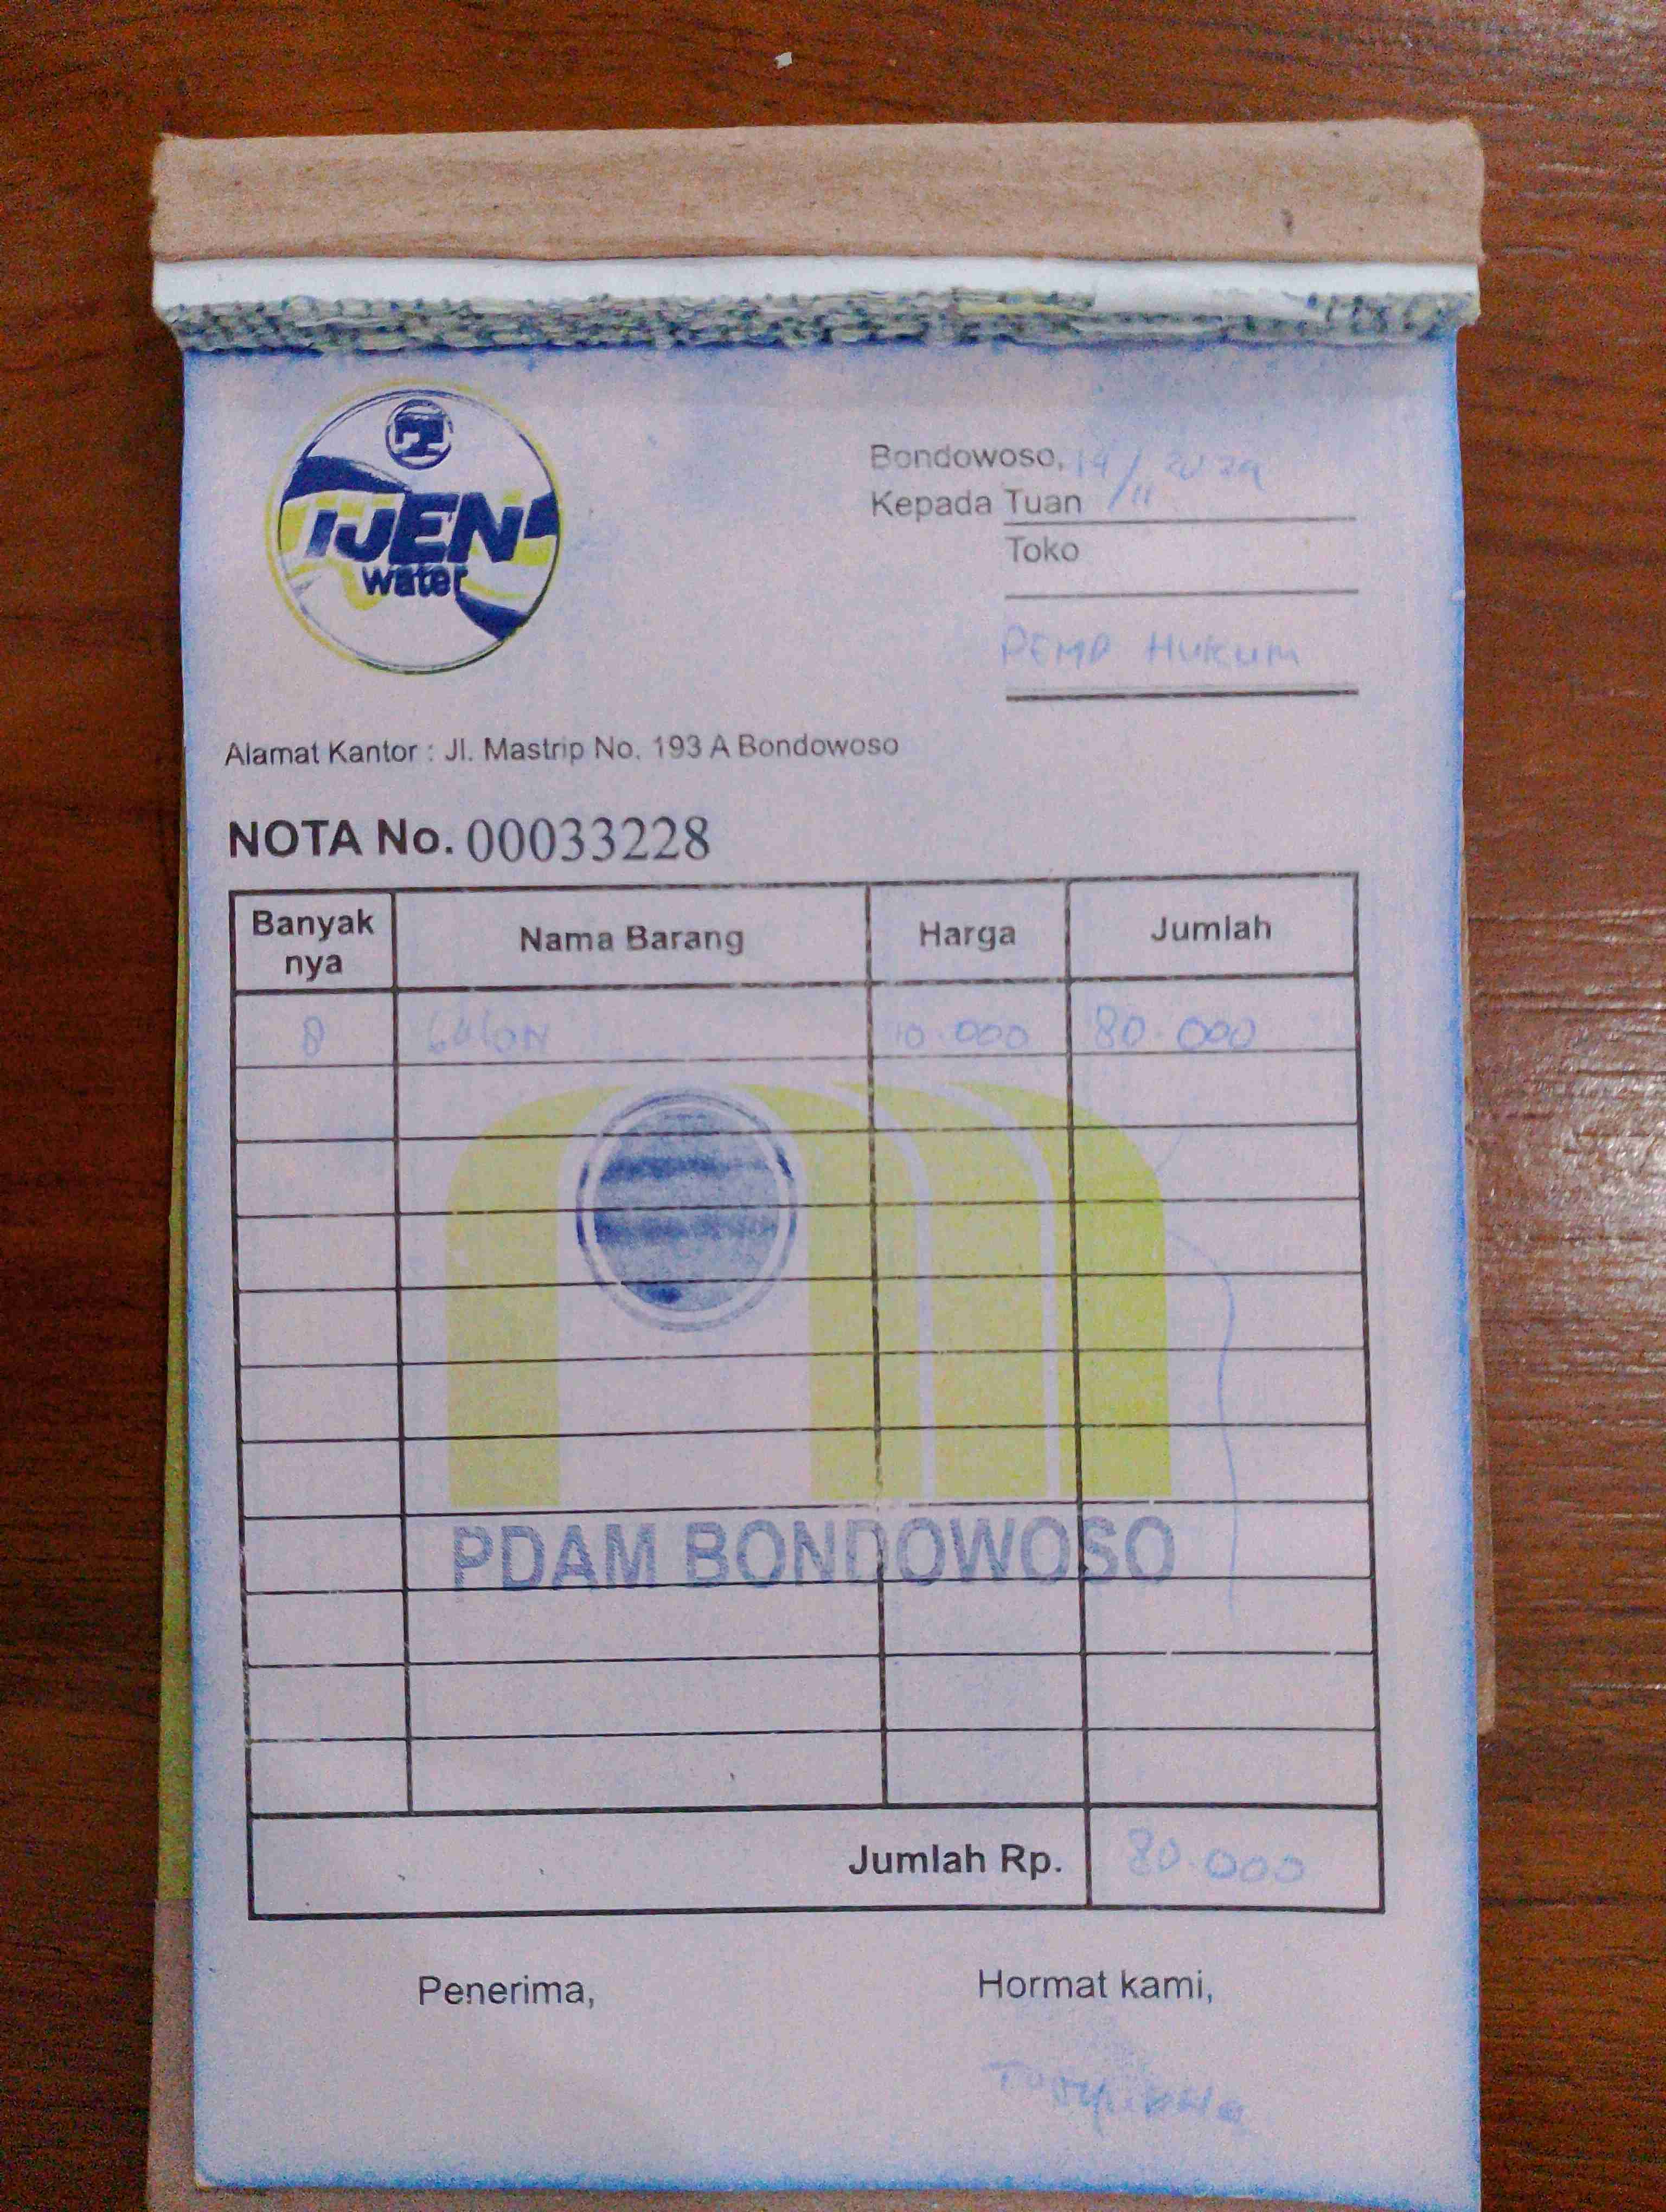 IJEN
water
Bondowoso, 14/11 2024
Kepada Tuan
Toko
PEMD HUKUM
Alamat Kantor : Jl. Mastrip No. 193 A Bondowoso
NOTA No. 00033228
Banyak nya Nama Barang Harga Jumlah
8 GALON 10.000 80.000
PDAM BONDOWOSO
Jumlah Rp. 80.000
Penerima, Hormat kami,